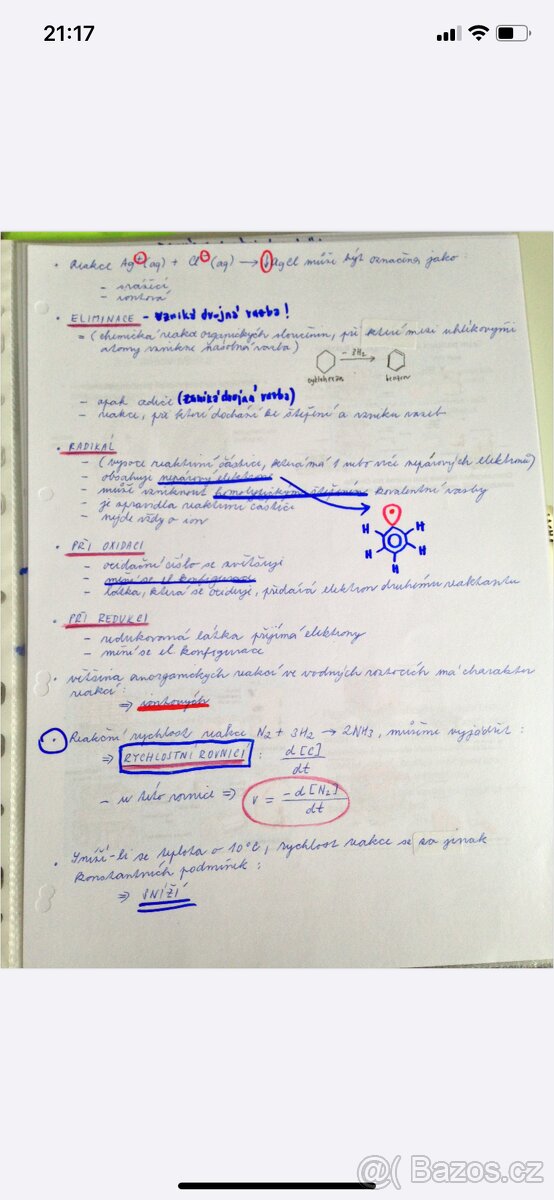 21:17
• Reakce Ag⊕(aq) + Cl⊖(aq) → ↓AgCl může být označena jako:
– srážecí
– iontová
• ELIMINACE – vzniká dvojná vazba!
= (chemická reakce organických sloučenin, při které mezi uhlíkovými
atomy vznikne násobná vazba)
– 3H₂
cyklohexan
benzen
– opak adice (zaniká dvojná vazba)
– reakce, při které dochází ke štěpení a vzniku vazeb
• RADIKÁL
– (vysoce reaktivní částice, která má 1 nebo více nepárových elektronů)
– obsahuje nepárový elektron
– může vzniknout homolytickým štěpením kovalentní vazby
– je zpravidla reaktivní částicí
– nejde vždy o ion
H H
H H
H
• PŘI OXIDACI
– oxidační číslo se zvětšuje
– mění se el. konfigurace
– látka, která se oxiduje, předává elektron druhému reaktantu
• PŘI REDUKCI
– redukovaná látka přijímá elektrony
– mění se el. konfigurace
• většina anorganických reakcí ve vodných roztocích má charakter
reakcí:
⇒ iontových
• Reakční rychlost reakce N₂ + 3H₂ → 2NH₃, můžeme vyjádřit:
⇒ RYCHLOSTNÍ ROVNICÍ : d[C]/dt
– u této rovnice ⇒ v = –d[N₂]/dt
• Sníží-li se teplota o 10°C, rychlost reakce se za jinak
konstantních podmínek:
⇒ SNÍŽÍ
@( Bazos.cz